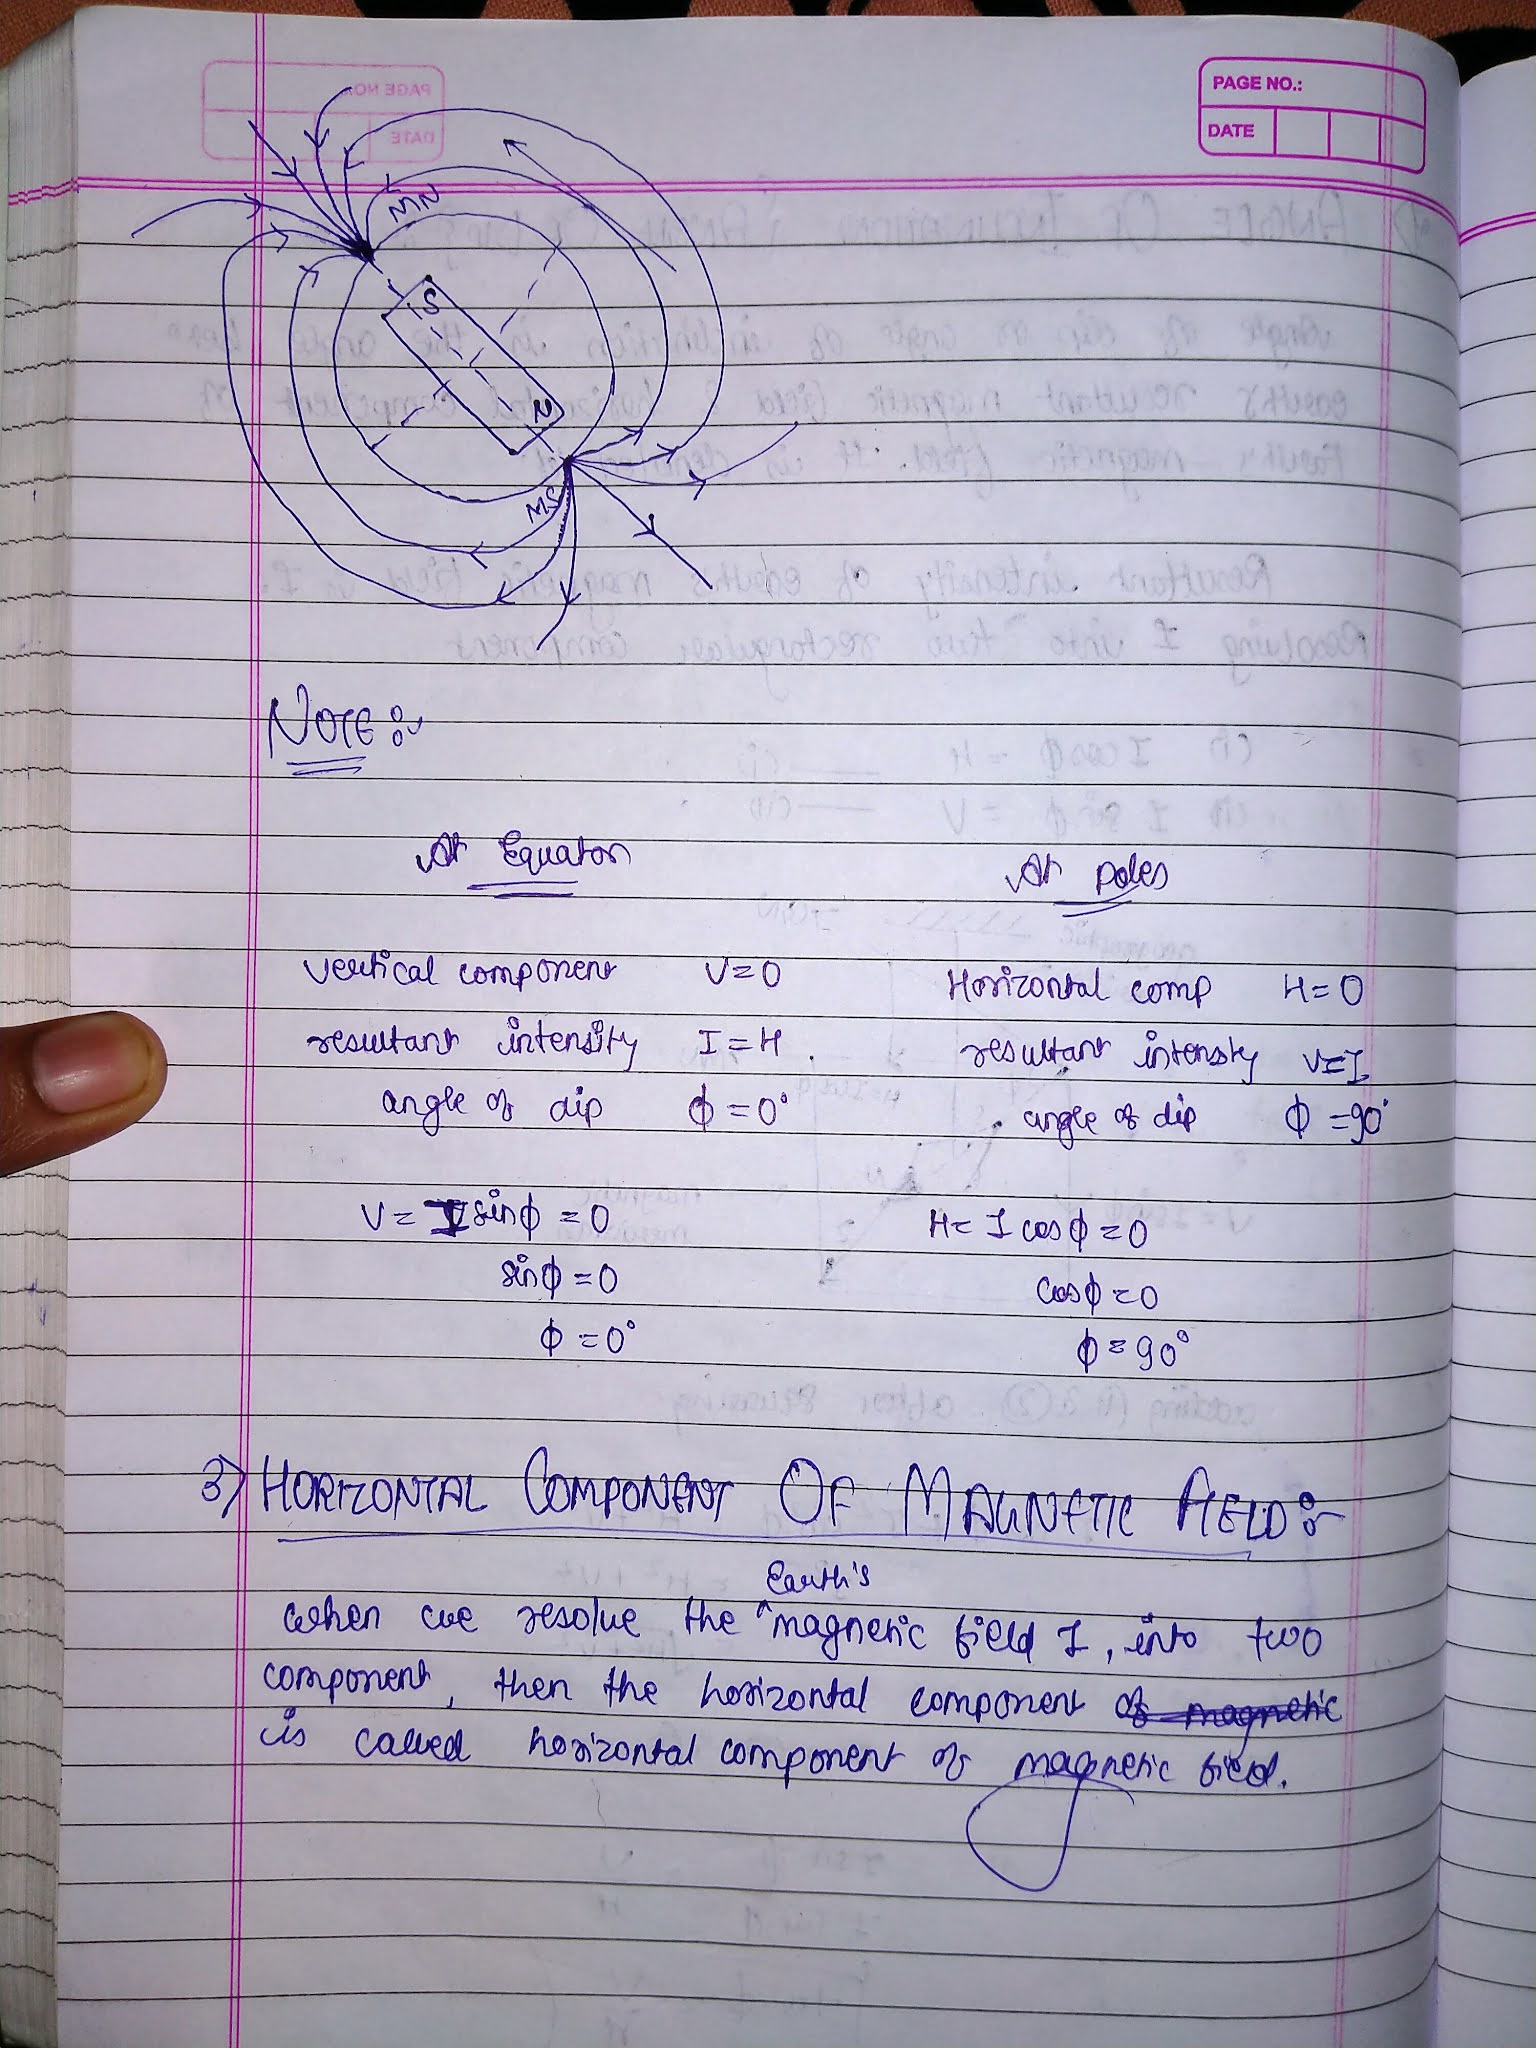 PAGE NO.:
DATE
MN
S
N
MS
NOTE:-
At Equator
At poles
vertical component V=0
Horizontal comp H=0
resultant intensity I=H.
resultant intensty V=I
angle of dip ϕ=0°
angle of dip ϕ=90°
V= I sinϕ =0
H= I cosϕ=0
sinϕ=0
cosϕ=0
ϕ=0°
ϕ=90°
3) HORIZONTAL COMPONENT OF MAGNETIC FIELD:-
Earth's
when we resolve the ^magnetic field I, into two
component, then the horizontal component of magnetic
is called horizontal component of magnetic field.